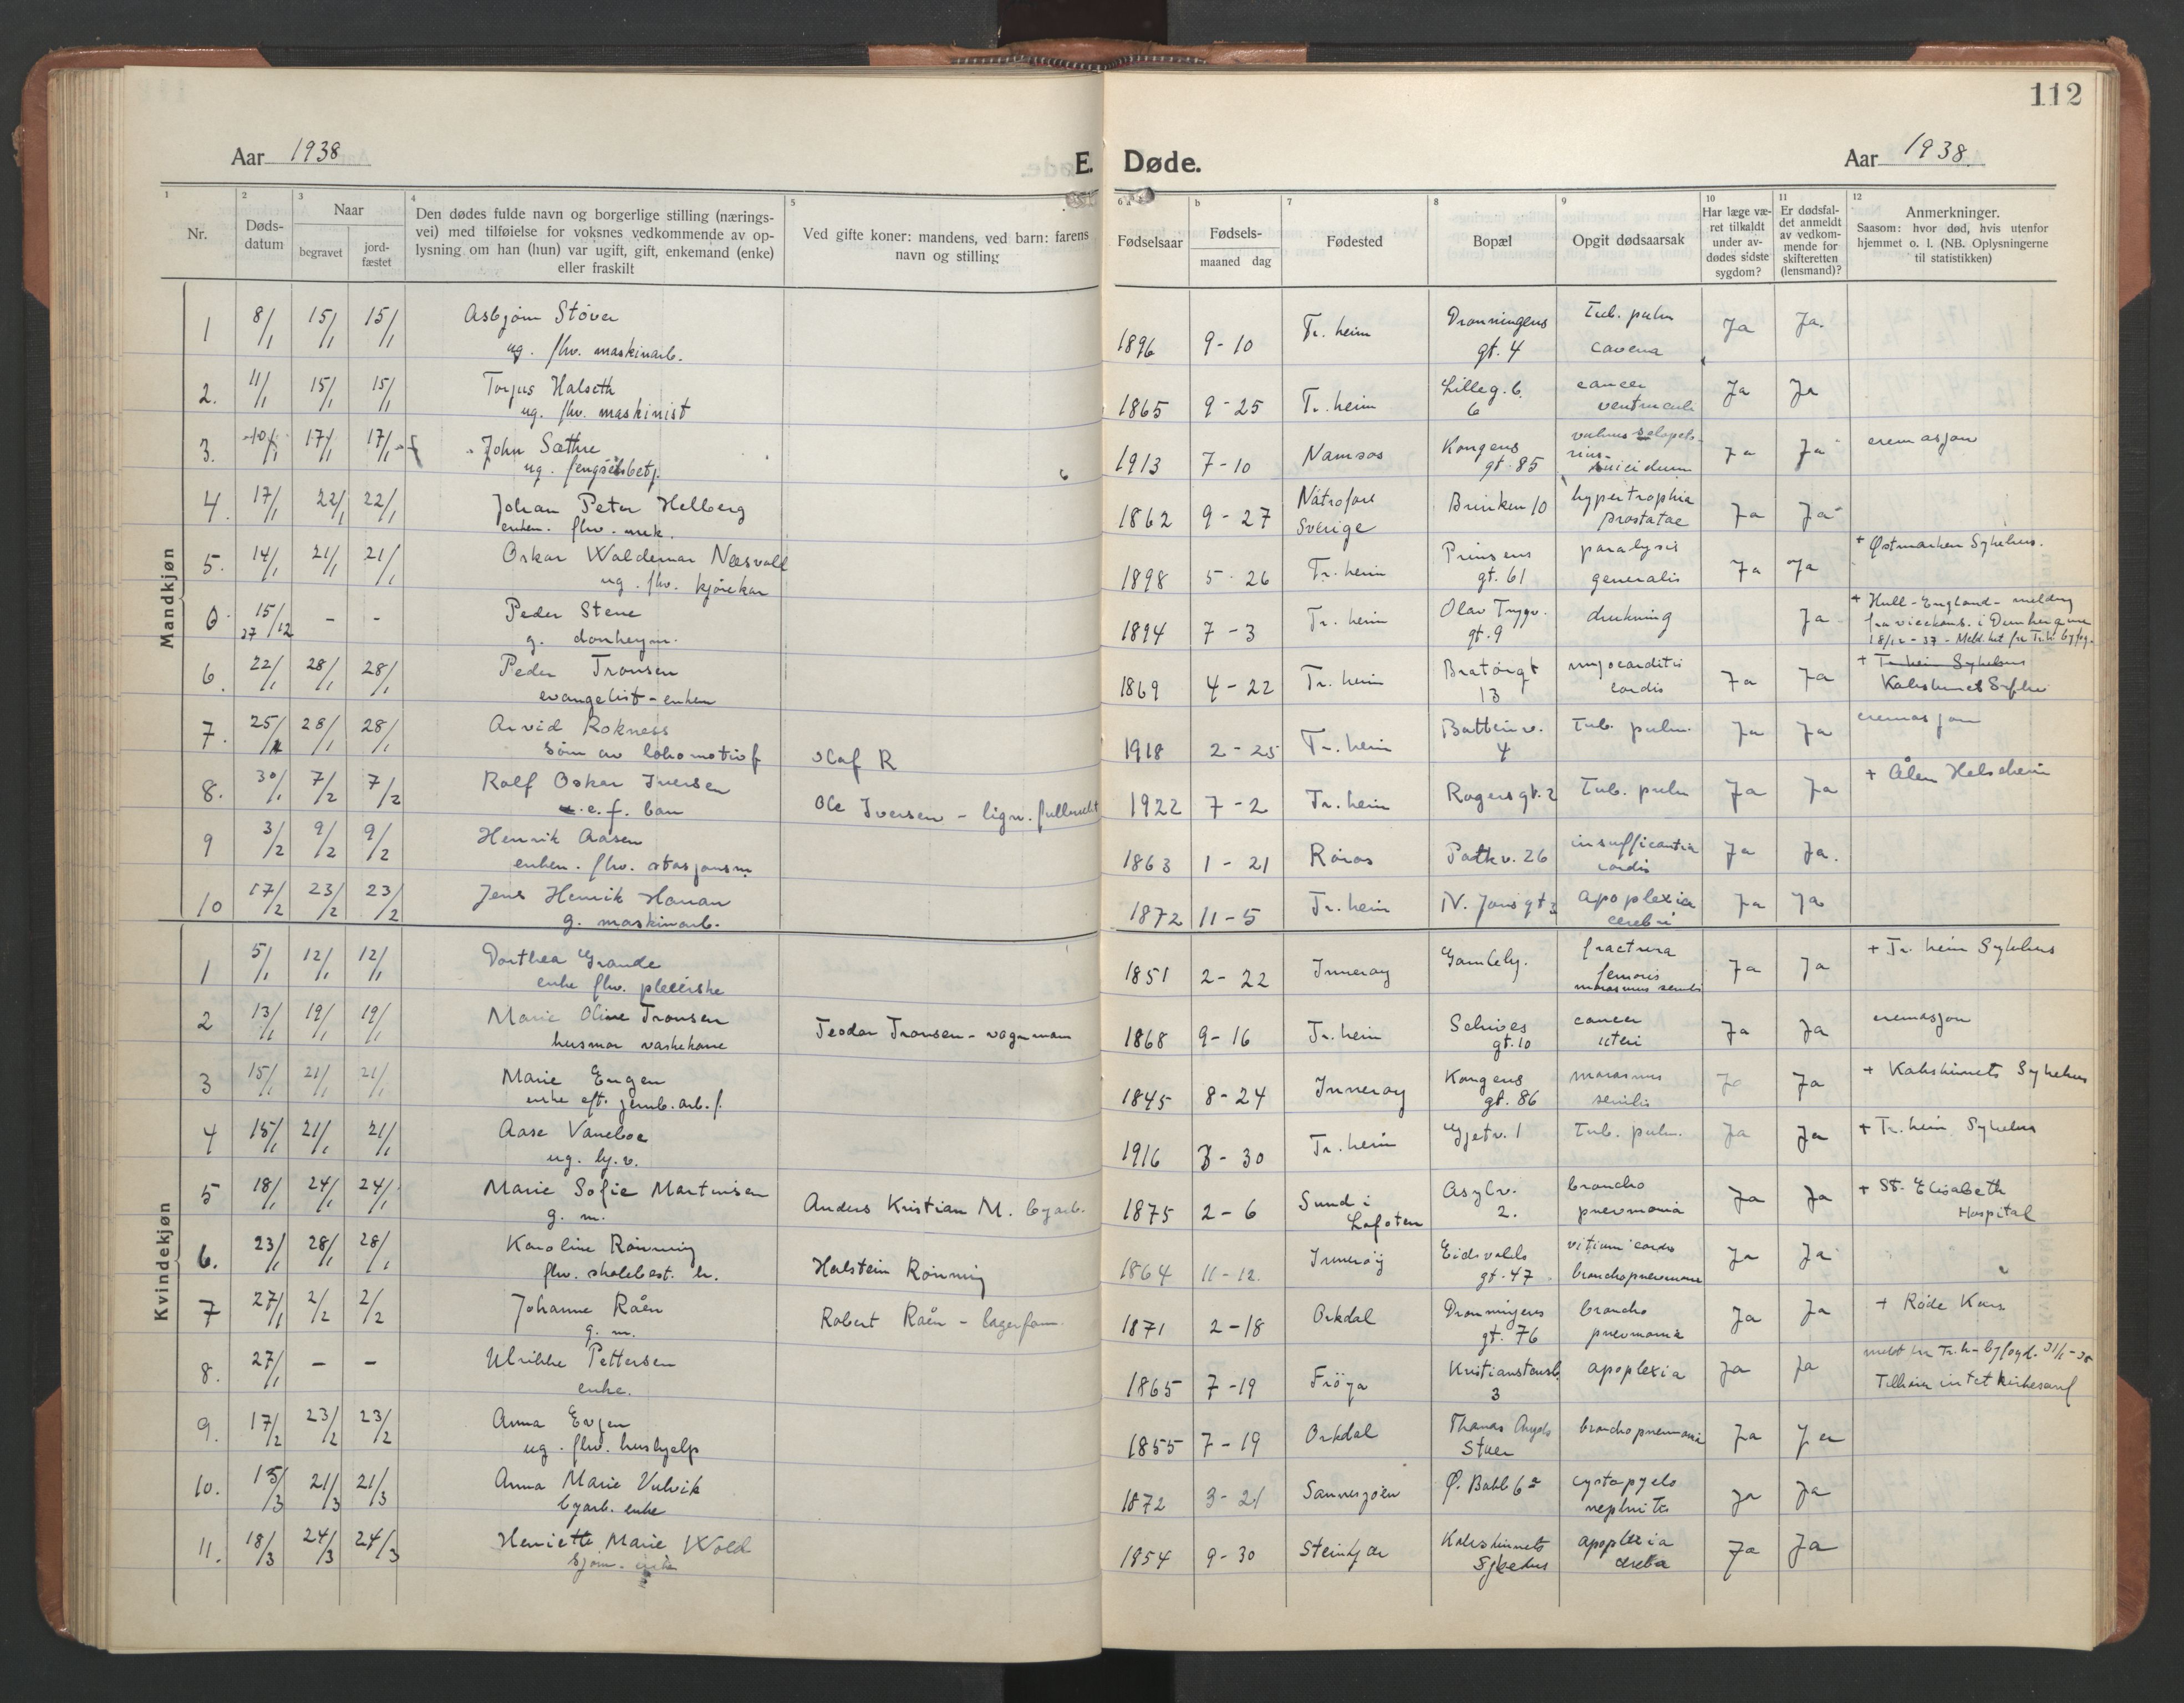 112
Aar 1938
E. Døde.
Aar 1938.
1 2 3 4 5 6 a b 7 8 9 10 11 12
Nr.
Døds-
datum
Naar
begravet
jord-
fæstet
Den dødes fulde navn og borgerlige stilling (nærings-
vei) med tilføielse for voksnes vedkommende av op-
lysning om han (hun) var ugift, gift, enkemand (enke)
eller fraskilt
Ved gifte koner: mandens, ved barn: farens
navn og stilling
Fødselsaar
Fødsels-
maaned dag
Fødested
Bopæl
Opgit dødsaarsak
Har læge væ-
ret tilkaldt
under av-
dødes sidste
sygdom?
Er dødsfal-
det anmeldt
av vedkom-
mende for
skifteretten
(lensmand)?
Anmerkninger.
Saasom: hvor død, hvis utenfor
hjemmet o. l. (NB. Oplysningerne
til statistikken)
Mandkjøn
1 8/1 15/1 15/1 Asbjørn Støver 1896 9-10 Tr.heim Dronningens Tub. pulm Ja Ja.
ug. fhv. maskinarb. gt. 4 caverna
2. 11/1 15/1 15/1 Torjus Halseth 1865 9-25 Tr.heim Lilleg.b. cancer Ja Ja
ug. fhv. maskinist 6 ventriculi
3. 10/1 17/1 17/1 John Sæthre 1913 7-10 Namsos Kongens vulnus sclopeto- Ja Ja cremasjon
ug. fengselsbetj. gt. 85 rius- suicidum
4. 17/1 22/1 22/1 Johan Peter Hellberg 1862 9-27 Nätrafore Brinken 10 hypertrophia Ja Ja
enkem. fhv. mek. Sverige prostatae
5. 14/1 21/1 21/1 Oskar Waldemar Næsvold 1898 5-26 Tr.heim Prinsens paralysis Ja Ja + Østmarken Sykehus.
ug. fhv. kjørekar gt. 61 generalis
0 15/12 37 - - Peder Stene 1894 7-3 Tr.heim Olav Trygv. drukning Ja + Hull-England- melding
g. donkeym. gt. 9 fra visekons. i
18/12-37 - Meld. hit fra Tr.h. byfog.
6. 22/1 28/1 28/1 Peder Tronsen 1869 4-22 Tr.heim Bratørgt myocarditis Ja Ja + Tr.heim Sykehus
evangelist - enkem 13 cordis Kalvskinnet
7. 25/1 28/1 28/1 Arvid Rokness 1918 2-25 Tr.heim Batteriv. Tub. pulm. Ja Ja cremasjon
Sønn av lokomotivf Olaf R 4
8. 30/1 7/2 7/2 Rolf Oskar Iversen 1922 7-2 Tr.heim Rogersgt. 2 Tub. pulm Ja Ja + Ålen Helseheim
e.f. barn Ole Iversen - lign.fullmekt
9 3/2 9/2 9/2 Henrik Aasen 1863 1-21 Røros Parkv. 26 insufficientia Ja Ja.
enkem. fhv. stasjonsm. cordis
10 17/2 23/2 23/2 Jens Henrik Hanan 1872 11-5 Tr.heim N. Jonsgt 3 apoplexia Ja Ja
g. maskinarb. cerebri
Kvindekjøn
1 5/1 12/1 12/1 Dorthea Grande 1851 2-22 Inderøy Gamleby. fractura Ja Ja + Tr.heim Sykehus
enke fhv. pleierske femoris
marasmus senilis
2 13/1 19/1 19/1 Marie Oline Tronsen Teodor Tronsen - vognmann 1868 9-16 Tr.heim Schives cancer Ja Ja cremasjon
husmor vaskekone gt. 10 uteri
3 15/1 21/1 21/1 Marie Engen 1845 8-24 Inneray Kongens marasmus Ja Ja + Kalvskinnets Sykehus
enke eft. jernb.arb.f. gt. 86 senilis
4 15/1 21/1 21/1 Aase Vaneboe 1916 3-30 Tr.heim Gjetv. 1 Tub. pulm. Ja Ja + Tr.heim Sykehus
ug. hj.v.
5 18/1 24/1 24/1 Marie Sofie Martinsen Anders Kristian M. byarb. 1875 2-6 Sund i Asylv. broncho Ja Ja + St. Elisabeth
g. m. Lofoten 2. pneumonia Hospital
6. 23/1 28/1 28/1 Karoline Rønning Halstein Rønning 1864 11-12. Inderøy Eidsvolds vitium cordis Ja Ja
fhv. skolebest. h. gt. 47 bronchopneumoni
7 27/1 2/2 2/2 Johanne Råen Robert Råen - lagerform. 1871 2-18 Orkdal Dronningens broncho Ja Ja + Røde Kors
g. m. gt. 76 pneumonia
8. 27/1 - - Ulrikke Pettersen 1865 7-19 Frøya Kristianstensb. apoplexia Ja Ja meldt fra Tr.h-byfogd. 31/1-38
enke. 3 Tilhører intet kirkesamf
9. 17/2 23/2 23/2 Anna Evjen 1855 7-19 Orkdal Thomas Angels bronchopneumonia Ja Ja
ug. fhv. hushjelp Stuer
10. 15/3 21/3 21/3 Anna Marie Vulvik 1872 3-21 Sannesjøen Ø. Bakl 6a cystopyelo Ja Ja
byarb. enke nephritis
11. 18/3 24/3 24/3 Henriette Marie Wold 1854 9-30 Steinkjær Kalvskinnets apoplexia Ja Ja
sjøm. enke Sykehus